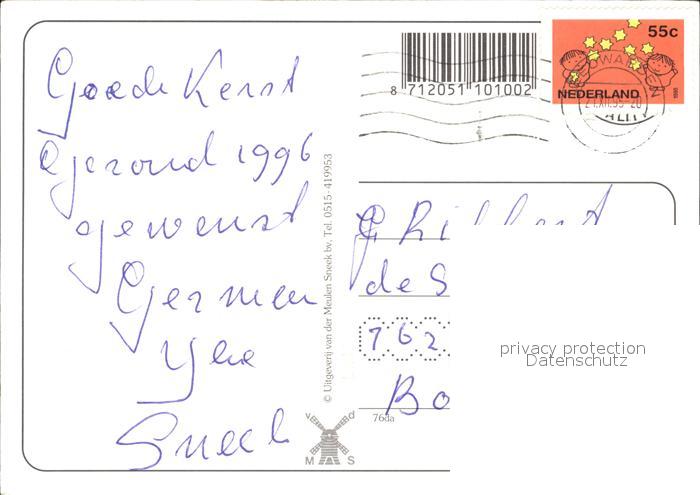 Goede Kerst
Gezond 1996
gewenst
Germen
Yke
Sneek
© Uitgeverij van der Meulen Sneek bv, Tel. 0515-419953
8 712051 101002
55c
NEDERLAND
1995
21.XII.95-20
de S
762
Bo
privacy protection
Datenschutz
v d
M S
76da